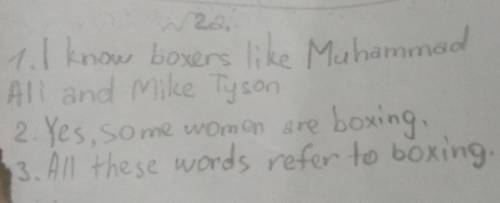 № 2a.
1. I know boxers like Muhammad
Ali and Mike Tyson
2. Yes, some women are boxing.
3. All these words refer to boxing.